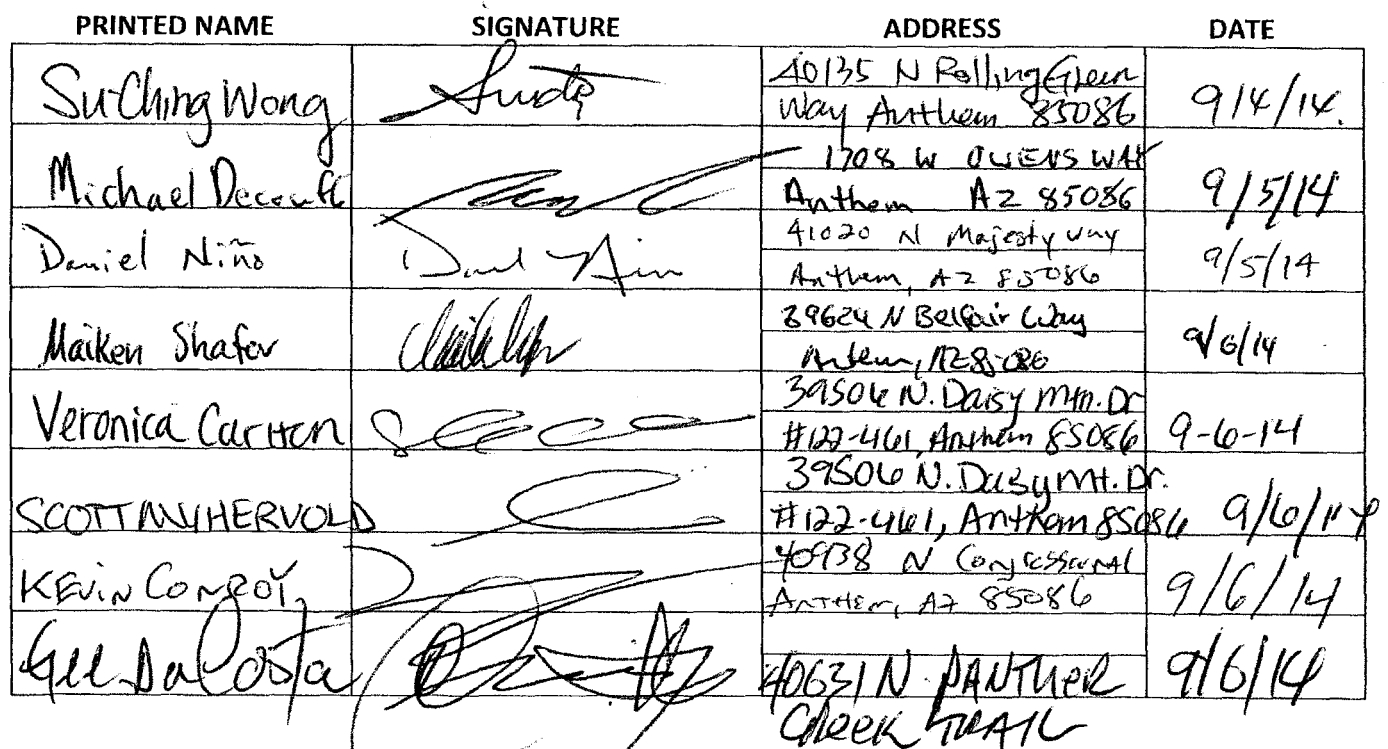 PRINTED NAME SIGNATURE ADDRESS DATE
Su-Ching Wong 40135 N Rolling Green
Way Anthem 85086 9/4/14.
Michael 1708 W OWENS WAY
Anthem AZ 85086 9/5/14
Daniel Niño 41020 N Majesty way
Anthem, AZ 85086 9/5/14
Maiken Shafer 39624 N Belfair Way
Antem, AZ 85086 9/6/14
Veronica Carlton 39506 N. Daisy Mtn. Dr
#122-461, Anthem 85086 9-6-14
SCOTT MYHERVOLD 39506 N. Daisy Mt. Dr.
#122-461, Anthem 85086 9/6/14
KEVIN CONROY 40938 N Congressional
ANTHEM, AZ 85086 9/6/14
Gee DaCosta 40631 N PANTHER 9/6/14
CREEK TRAIL